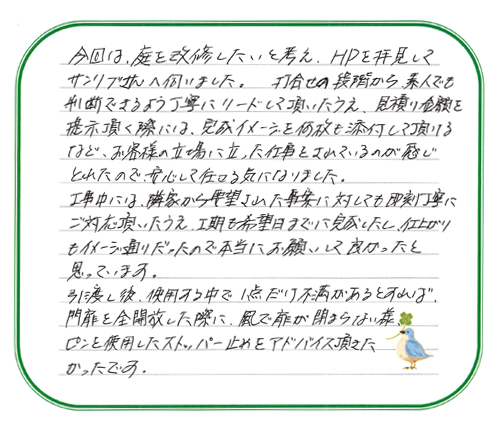 今回は、庭を改修したいと考え、HPを拝見して
サンリブさんへ伺いました。 打合せの段階から素人でも
判断できるよう丁寧にリードして頂いたうえ、見積り金額を
提示頂く際には、完成イメージを何枚も添付して頂ける
など、お客様の立場に立った仕事をされているのが感じ
とれたので安心して任せる気になりました。
工事中には、隣家から要望された事案に対しても即実丁寧に
ご対応頂いたうえ、工期も希望日までに完成したし、仕上がり
もイメージ通りだったので本当にお願いして良かったと
思っています。
引渡し後、使用する中で1点だけ不満があるとすれば、
門扉を全開放した際に、風で扉が閉まらない様、
ピンを使用したストッパー止めをアドバイス頂きた
かったです。